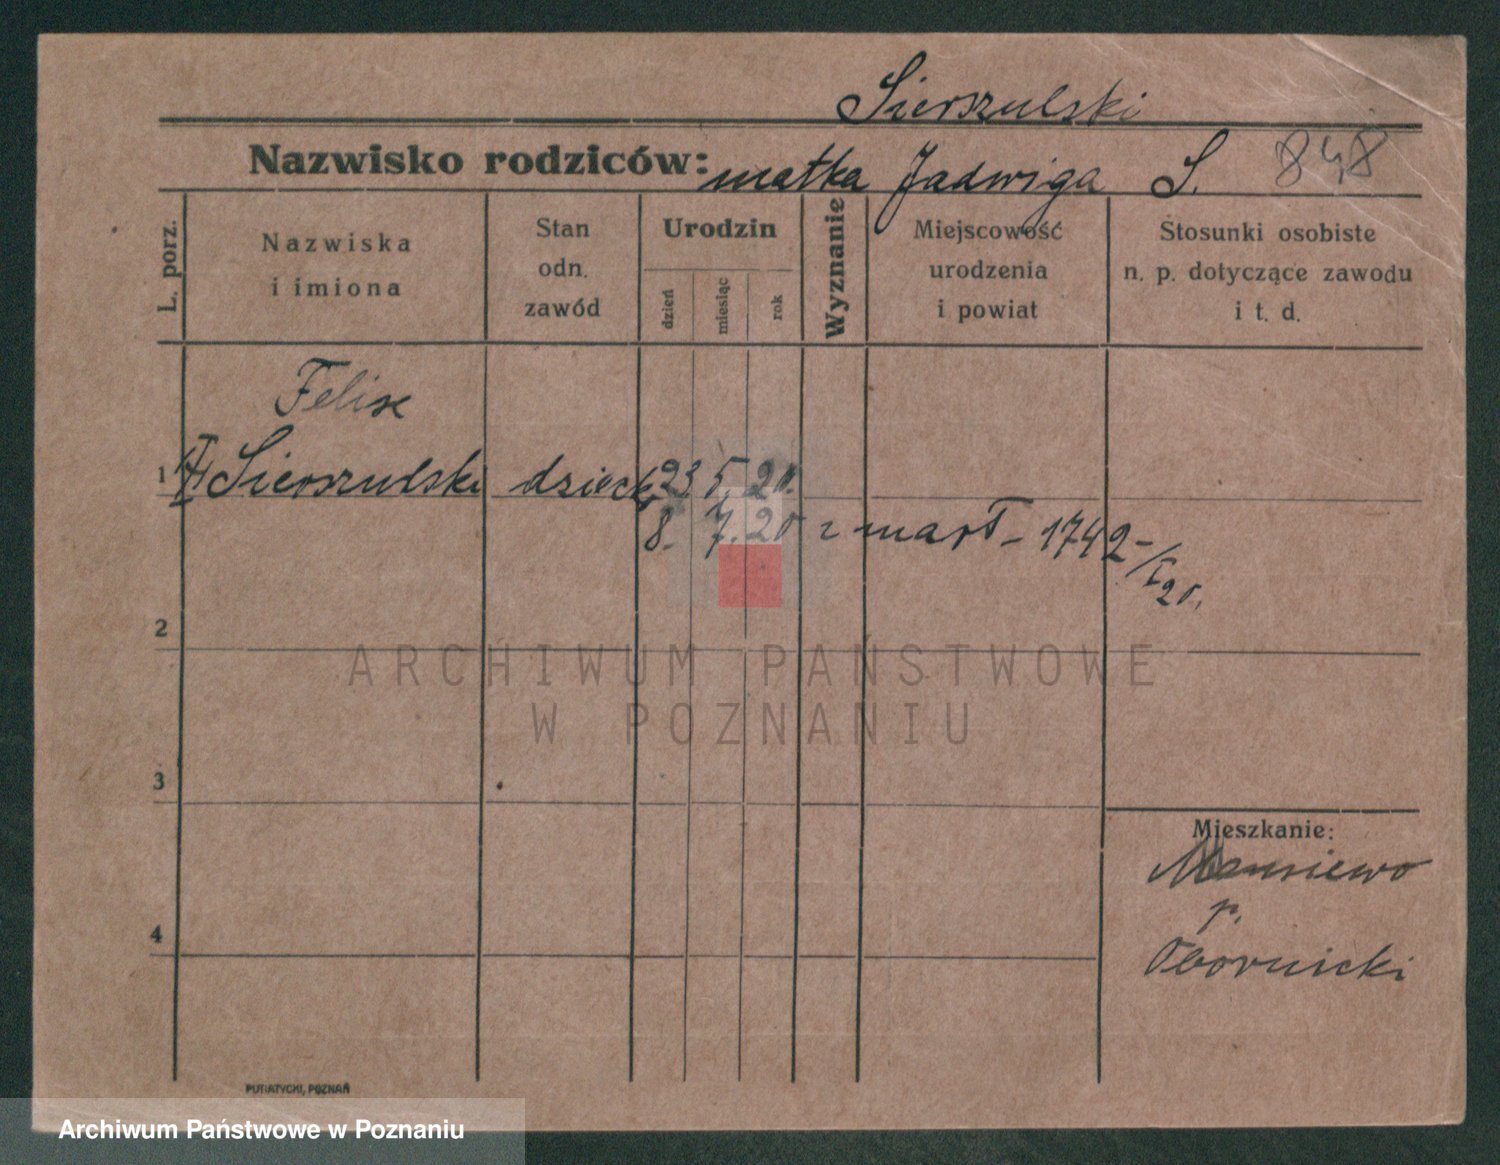 Sierszulski
Nazwisko rodziców: matka Jadwiga S. 848
L. porz.
Nazwiska
i imiona
Stan
odn.
zawód
Urodzin
dzień
miesiąc
rok
Wyznanie
Miejscowość
urodzenia
i powiat
Stosunki osobiste
n. p. dotyczące zawodu
i t. d.
Felix
1 Sierszulski dziecko 23 5. 20.
8. 7. 20 zmarł - 1742 - / I 20.
2
3
4
Mieszkanie:
p.
Obornicki
PUTIATYCKI, POZNAŃ
ARCHIWUM PAŃSTWOWE
W POZNANIU
Archiwum Państwowe w Poznaniu